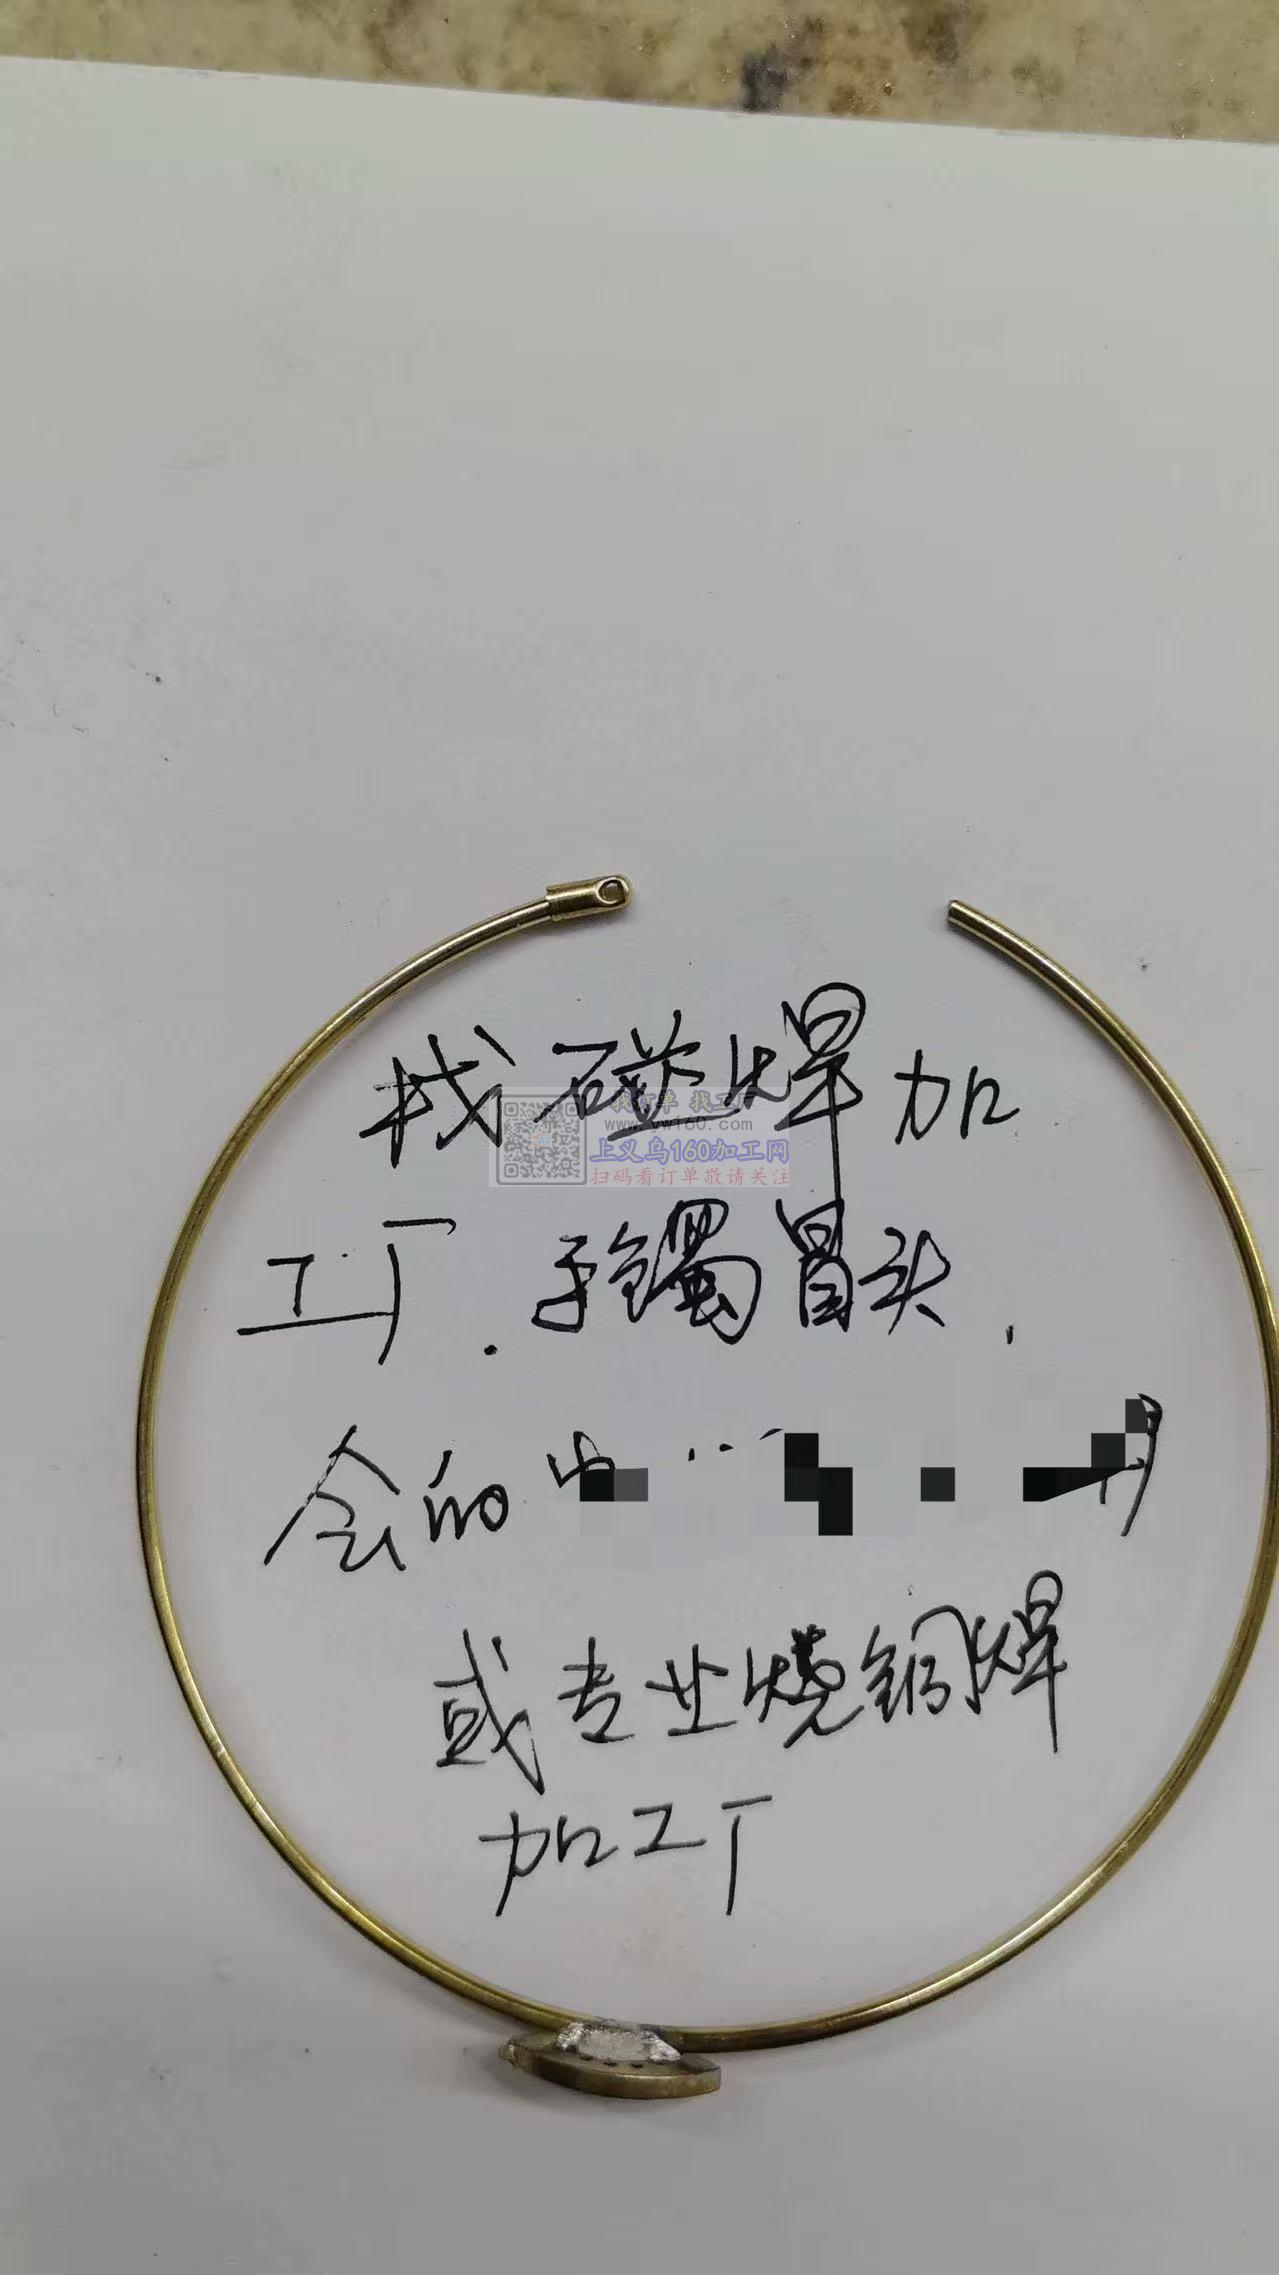 找碰焊加
找订单 找工厂
www.yw160.com
上义乌160加工网
扫码看订单敬请关注
工厂.手镯冒头,
会的
或专业烧铜焊
加工厂